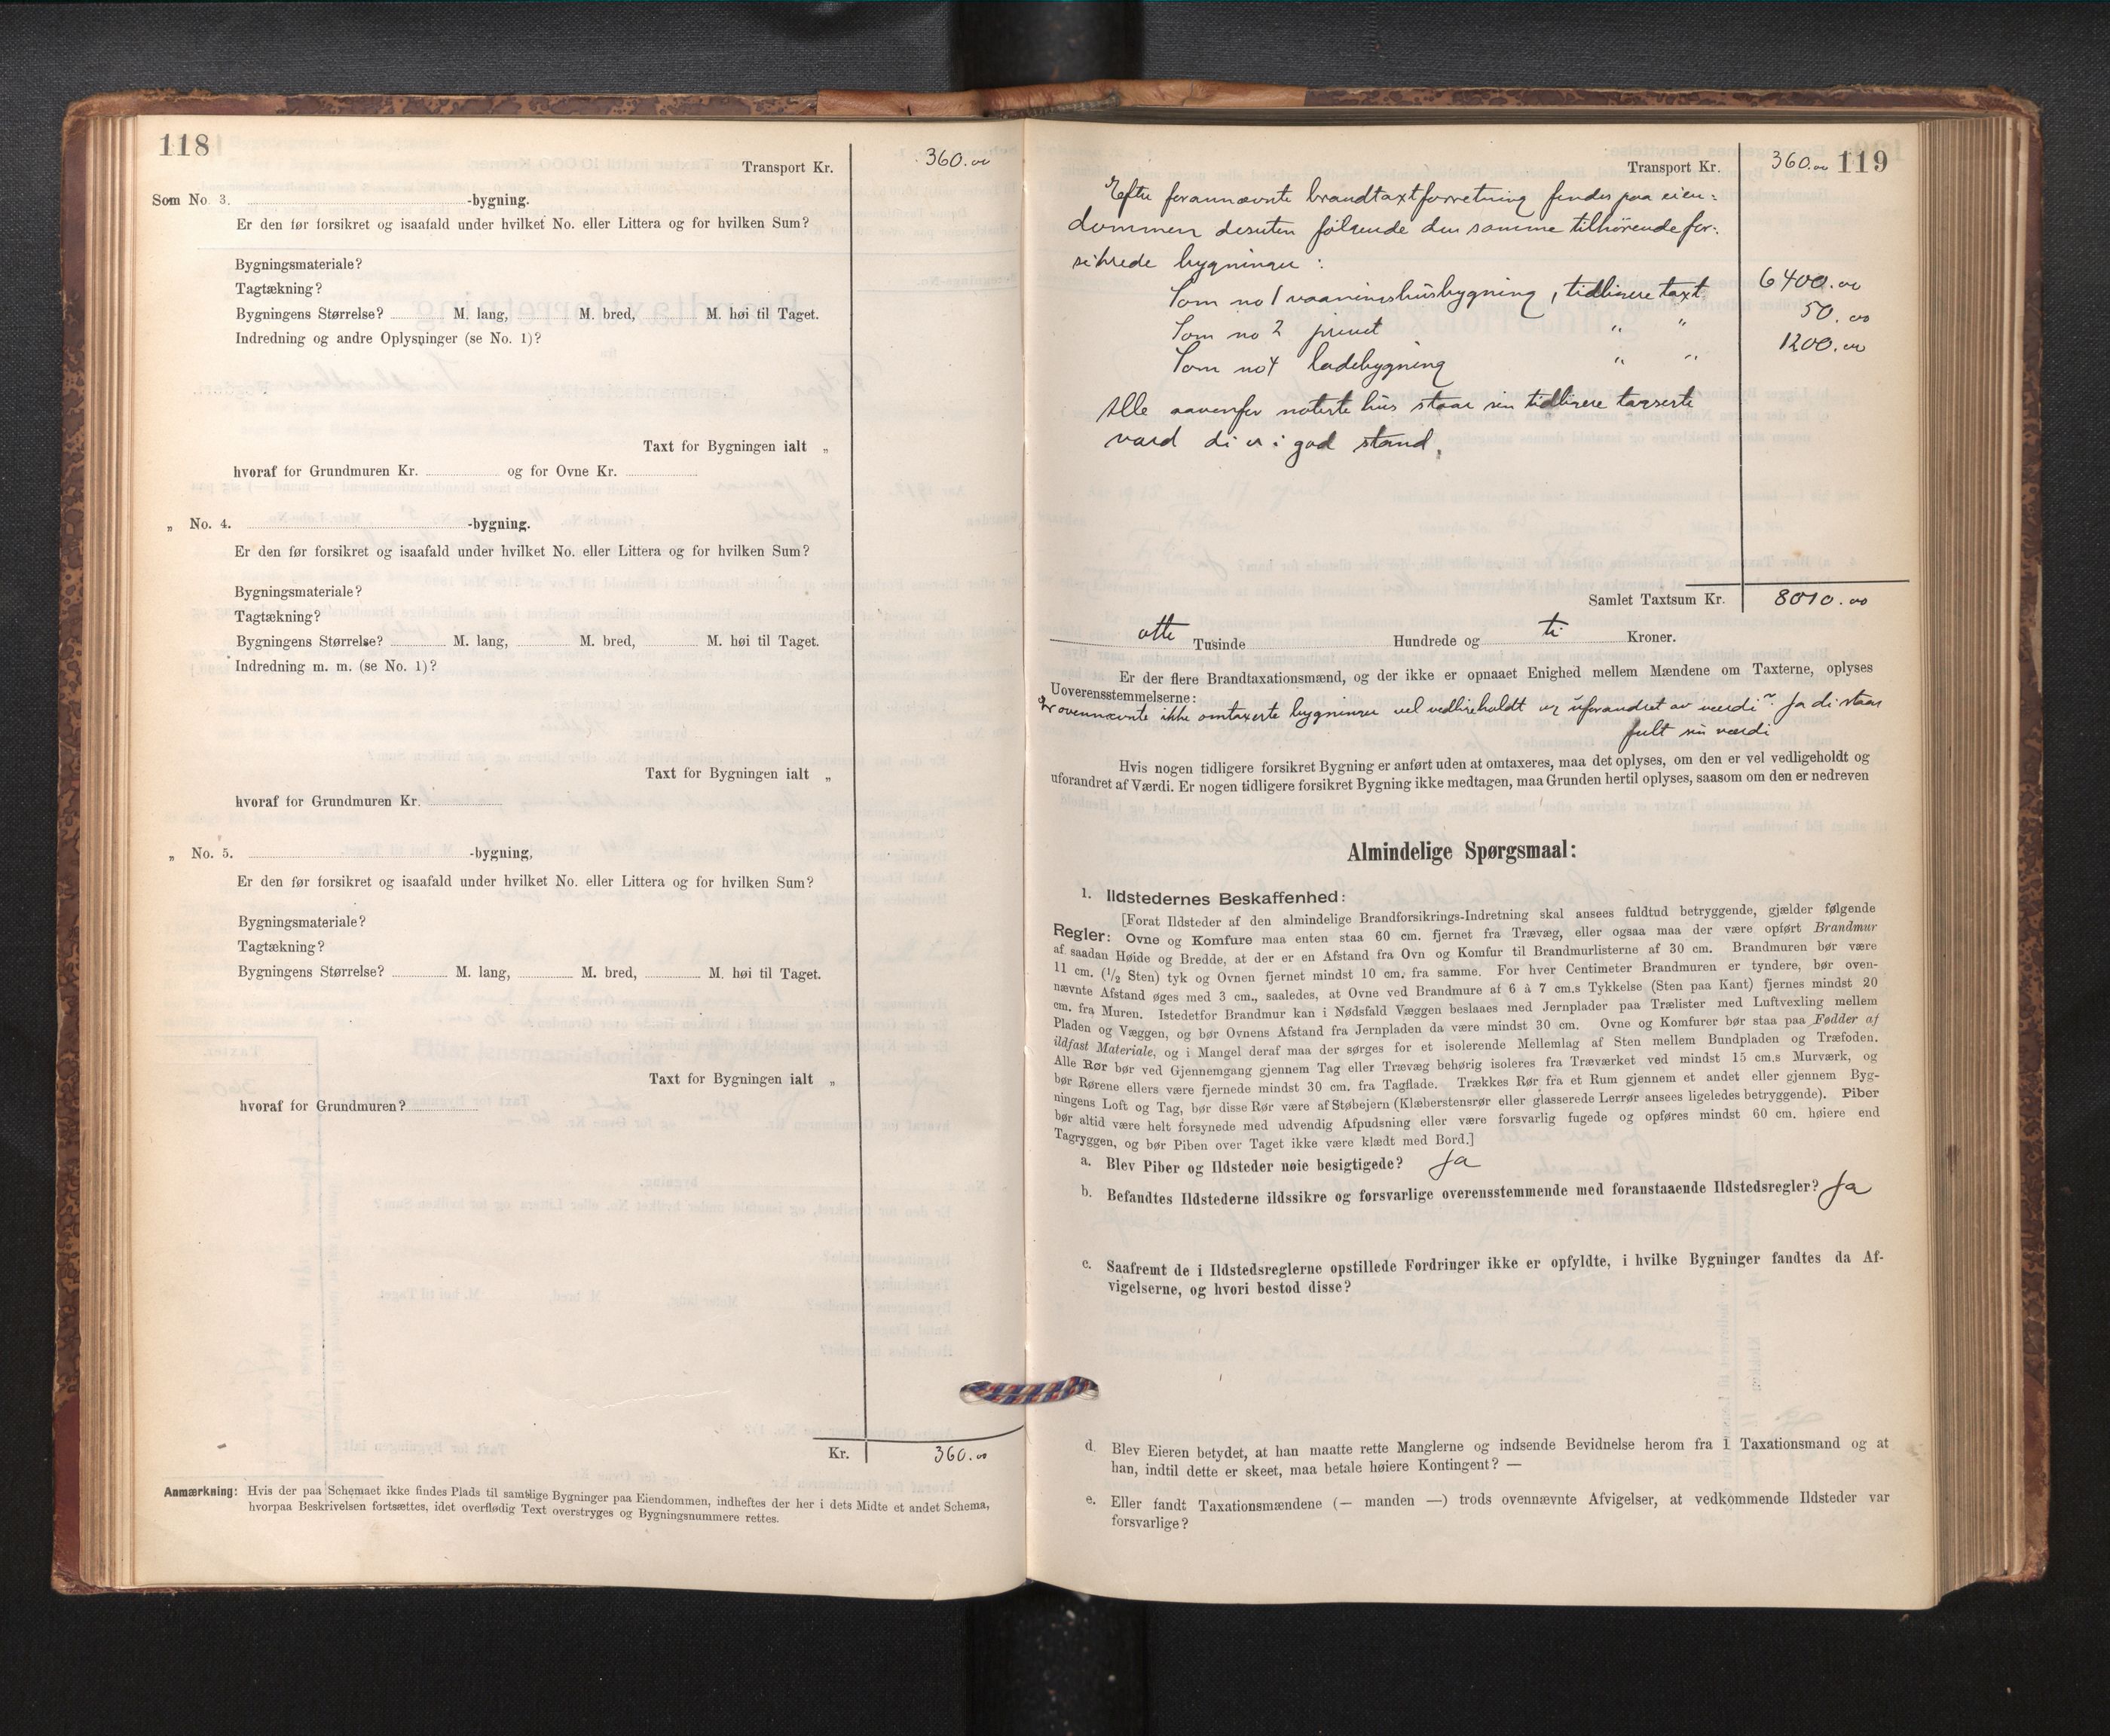 118
Transport Kr. 360.00
Som No. 3. -bygning.
Er den før forsikret og isaafald under hvilket No. eller Littera og for hvilken Sum?
Bygningsmateriale?
Tagtækning?
Bygningens Størrelse? M. lang, M. bred, M. høi til Taget.
Indredning og andre Oplysninger (se No. 1)?
Taxt for Bygningen ialt „
hvoraf for Grundmuren Kr. og for Ovne Kr.
„ No. 4. -bygning.
Er den før forsikret og isaafald under hvilket No. eller Littera og for hvilken Sum?
Bygningsmateriale?
Tagtækning?
Bygningens Størrelse? M. lang, M. bred, M. høi til Taget.
Indredning m. m. (se No. 1)?
Taxt for Bygningen ialt „
hvoraf for Grundmuren Kr.
„ No. 5. -bygning,
Er den før forsikret og isaafald under hvilket No. eller Littera og for hvilken Sum?
Bygningsmateriale?
Tagtækning?
Bygningens Størrelse? M. lang, M. bred, M. høi til Taget.
Taxt for Bygningen ialt „
hvoraf for Grundmuren?
Kr. 360.00
Anmærkning: Hvis der paa Schemaet ikke findes Plads til samtlige Bygninger paa Eiendommen, indheftes der her i dets Midte et andet Schema,
hvorpaa Beskrivelsen fortsættes, idet overflødig Text overstryges og Bygningsnummere rettes.
Transport Kr. 360.00 119
Efter forannævnte brandtaxtforretning findes paa eien:
dommen desuten følgende den samme tilhörende for:
sikrede bygninger:
Som no 1 vaaningshusbygning, tidligere taxt 6400.00
Som no 2 privet " " 50.00
Som no 4 ladebygning " " 1200.00
Alle aavenfor noterte hus staar sin tidligere taxserte
værd di er i god stand.
Samlet Taxtsum Kr. 8010.00
otte Tusinde Hundrede og ti Kroner.
Er der flere Brandtaxationsmænd, og der ikke er opnaaet Enighed mellem Mændene om Taxterne, oplyses
Uoverensstemmelserne:
Er ovennævnte ikke omtaxerte bygninger vel vedlikeholdt og uforandret av værdi? Ja di staar
fult sin værdi
Hvis nogen tidligere forsikret Bygning er anført uden at omtaxeres, maa det oplyses, om den er vel vedligeholdt og
uforandret af Værdi. Er nogen tidligere forsikret Bygning ikke medtagen, maa Grunden hertil oplyses, saasom om den er nedreven
Almindelige Spørgsmaal:
1. Ildstedernes Beskaffenhed:
[Forat Ildsteder af den almindelige Brandforsikrings-Indretning skal ansees fuldtud betryggende, gjælder følgende
Regler: Ovne og Komfure maa enten staa 60 cm. fjernet fra Trævæg, eller ogsaa maa der være opført Brandmur
af saadan Høide og Bredde, at der er en Afstand fra Ovn og Komfur til Brandmurlisterne af 30 cm. Brandmuren bør være
11 cm. (1/2 Sten) tyk og Ovnen fjernet mindst 10 cm. fra samme. For hver Centimeter Brandmuren er tyndere, bør oven-
nævnte Afstand øges med 3 cm., saaledes, at Ovne ved Brandmure af 6 à 7 cm.s Tykkelse (Sten paa Kant) fjernes mindst 20
cm. fra Muren. Istedetfor Brandmur kan i Nødsfald Væggen beslaaes med Jernplader paa Trælister med Luftvexling mellem
Pladen og Væggen, og bør Ovnens Afstand fra Jernpladen da være mindst 30 cm. Ovne og Komfurer bør staa paa Fødder af
ildfast Materiale, og i Mangel deraf maa der sørges for et isolerende Mellemlag af Sten mellem Bundpladen og Træfoden.
Alle Rør bør ved Gjennemgang gjennem Tag eller Trævæg behørig isoleres fra Træværket ved mindst 15 cm.s Murværk, og
bør Rørene ellers være fjernede mindst 30 cm. fra Tagflade. Trækkes Rør fra et Rum gjennem et andet eller gjennem Byg-
ningens Loft og Tag, bør disse Rør være af Støbejern (Klæberstensrør eller glasserede Lerrør ansees ligeledes betryggende). Piber
bør altid være helt forsynede med udvendig Afpudsning eller være forsvarlig fugede og opføres mindst 60 cm. høiere end
Tagryggen, og bør Piben over Taget ikke være klædt med Bord.]
a. Blev Piber og Ildsteder nøie besigtigede? Ja
b. Befandtes Ildstederne ildssikre og forsvarlige overensstemmende med foranstaaende Ildstedsregler? Ja
c. Saafremt de i Ildstedsreglerne opstillede Fordringer ikke er opfyldte, i hvilke Bygninger fandtes da Af-
vigelserne, og hvori bestod disse?
d. Blev Eieren betydet, at han maatte rette Manglerne og indsende Bevidnelse herom fra 1 Taxationsmand og at
han, indtil dette er skeet, maa betale høiere Kontingent? —
e. Eller fandt Taxationsmændene (— manden —) trods ovennævnte Afvigelser, at vedkommende Ildsteder var
forsvarlige?